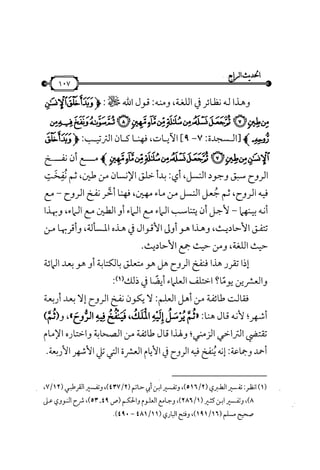 الحديث الرابع
١٠٧
وهذا له نظائر في اللغة، ومنه: قول الله ﷻ: ﴿وَبَدَأَ خَلْقَ الْإِنسَانِ
مِن طِينٍ ۝٧ ثُمَّ جَعَلَ نَسْلَهُ مِن سُلَالَةٍ مِّن مَّاءٍ مَّهِينٍ ۝٨ ثُمَّ سَوَّاهُ وَنَفَخَ فِيهِ مِن
رُّوحِهِ﴾ [السجدة: ٧-٩] الآيات، فهنا كان الترتيب: ﴿وَبَدَأَ خَلْقَ
الْإِنسَانِ مِن طِينٍ ۝٧ ثُمَّ جَعَلَ نَسْلَهُ مِن سُلَالَةٍ مِّن مَّاءٍ مَّهِينٍ﴾ مع أن نفخ
الروح سبق وجود النسل، أي: بدأ خلق الإنسان من طين، ثم نُفِخَتْ
فيه الروح، ثم جُعل النسل من ماء مهين، فهنا أخَّر نفخ الروح - مع
أنه بينهما - لأجل أن يتناسب الماء مع الماء أو الطين مع الماء، وبهذا
تتفق الأحاديث، وهذا هو أولى الأقوال في هذه المسألة، وأقربها من
حيث اللغة، ومن حيث جمع الأحاديث.
إذا تقرر هذا فنفخ الروح هل هو متعلق بالكتابة أو هو بعد المائة
والعشرين يومًا؟ اختلف العلماء أيضًا في ذلك(١):
فقالت طائفة من أهل العلم: لا يكون نفخ الروح إلا بعد أربعة
أشهر؛ لأنه قال هنا: «ثُمَّ يُرْسَلُ إِلَيْهِ المَلَكُ، فَيَنْفُخُ فِيهِ الرُّوحَ»، و(ثُمَّ)
تقتضي التراخي الزمني؛ ولهذا قال طائفة من الصحابة واختاره الإمام
أحمد وجماعة: إنه يُنفخ فيه الروح في الأيام العشرة التي تلي الأشهر الأربعة.
(١) انظر: تفسير الطبري (٥١٦/٢)، وتفسير ابن أبي حاتم (٤٣٧/٢)، وتفسير القرطبي (٧/١٢،
٨)، وتفسير ابن كثير (٢٨٦/١)، وجامع العلوم والحكم (ص ٤٩، ٥٣)، شرح النووي على
صحيح مسلم (١٩١/١٦)، وفتح الباري (٤٨١/١١ - ٤٩٠).